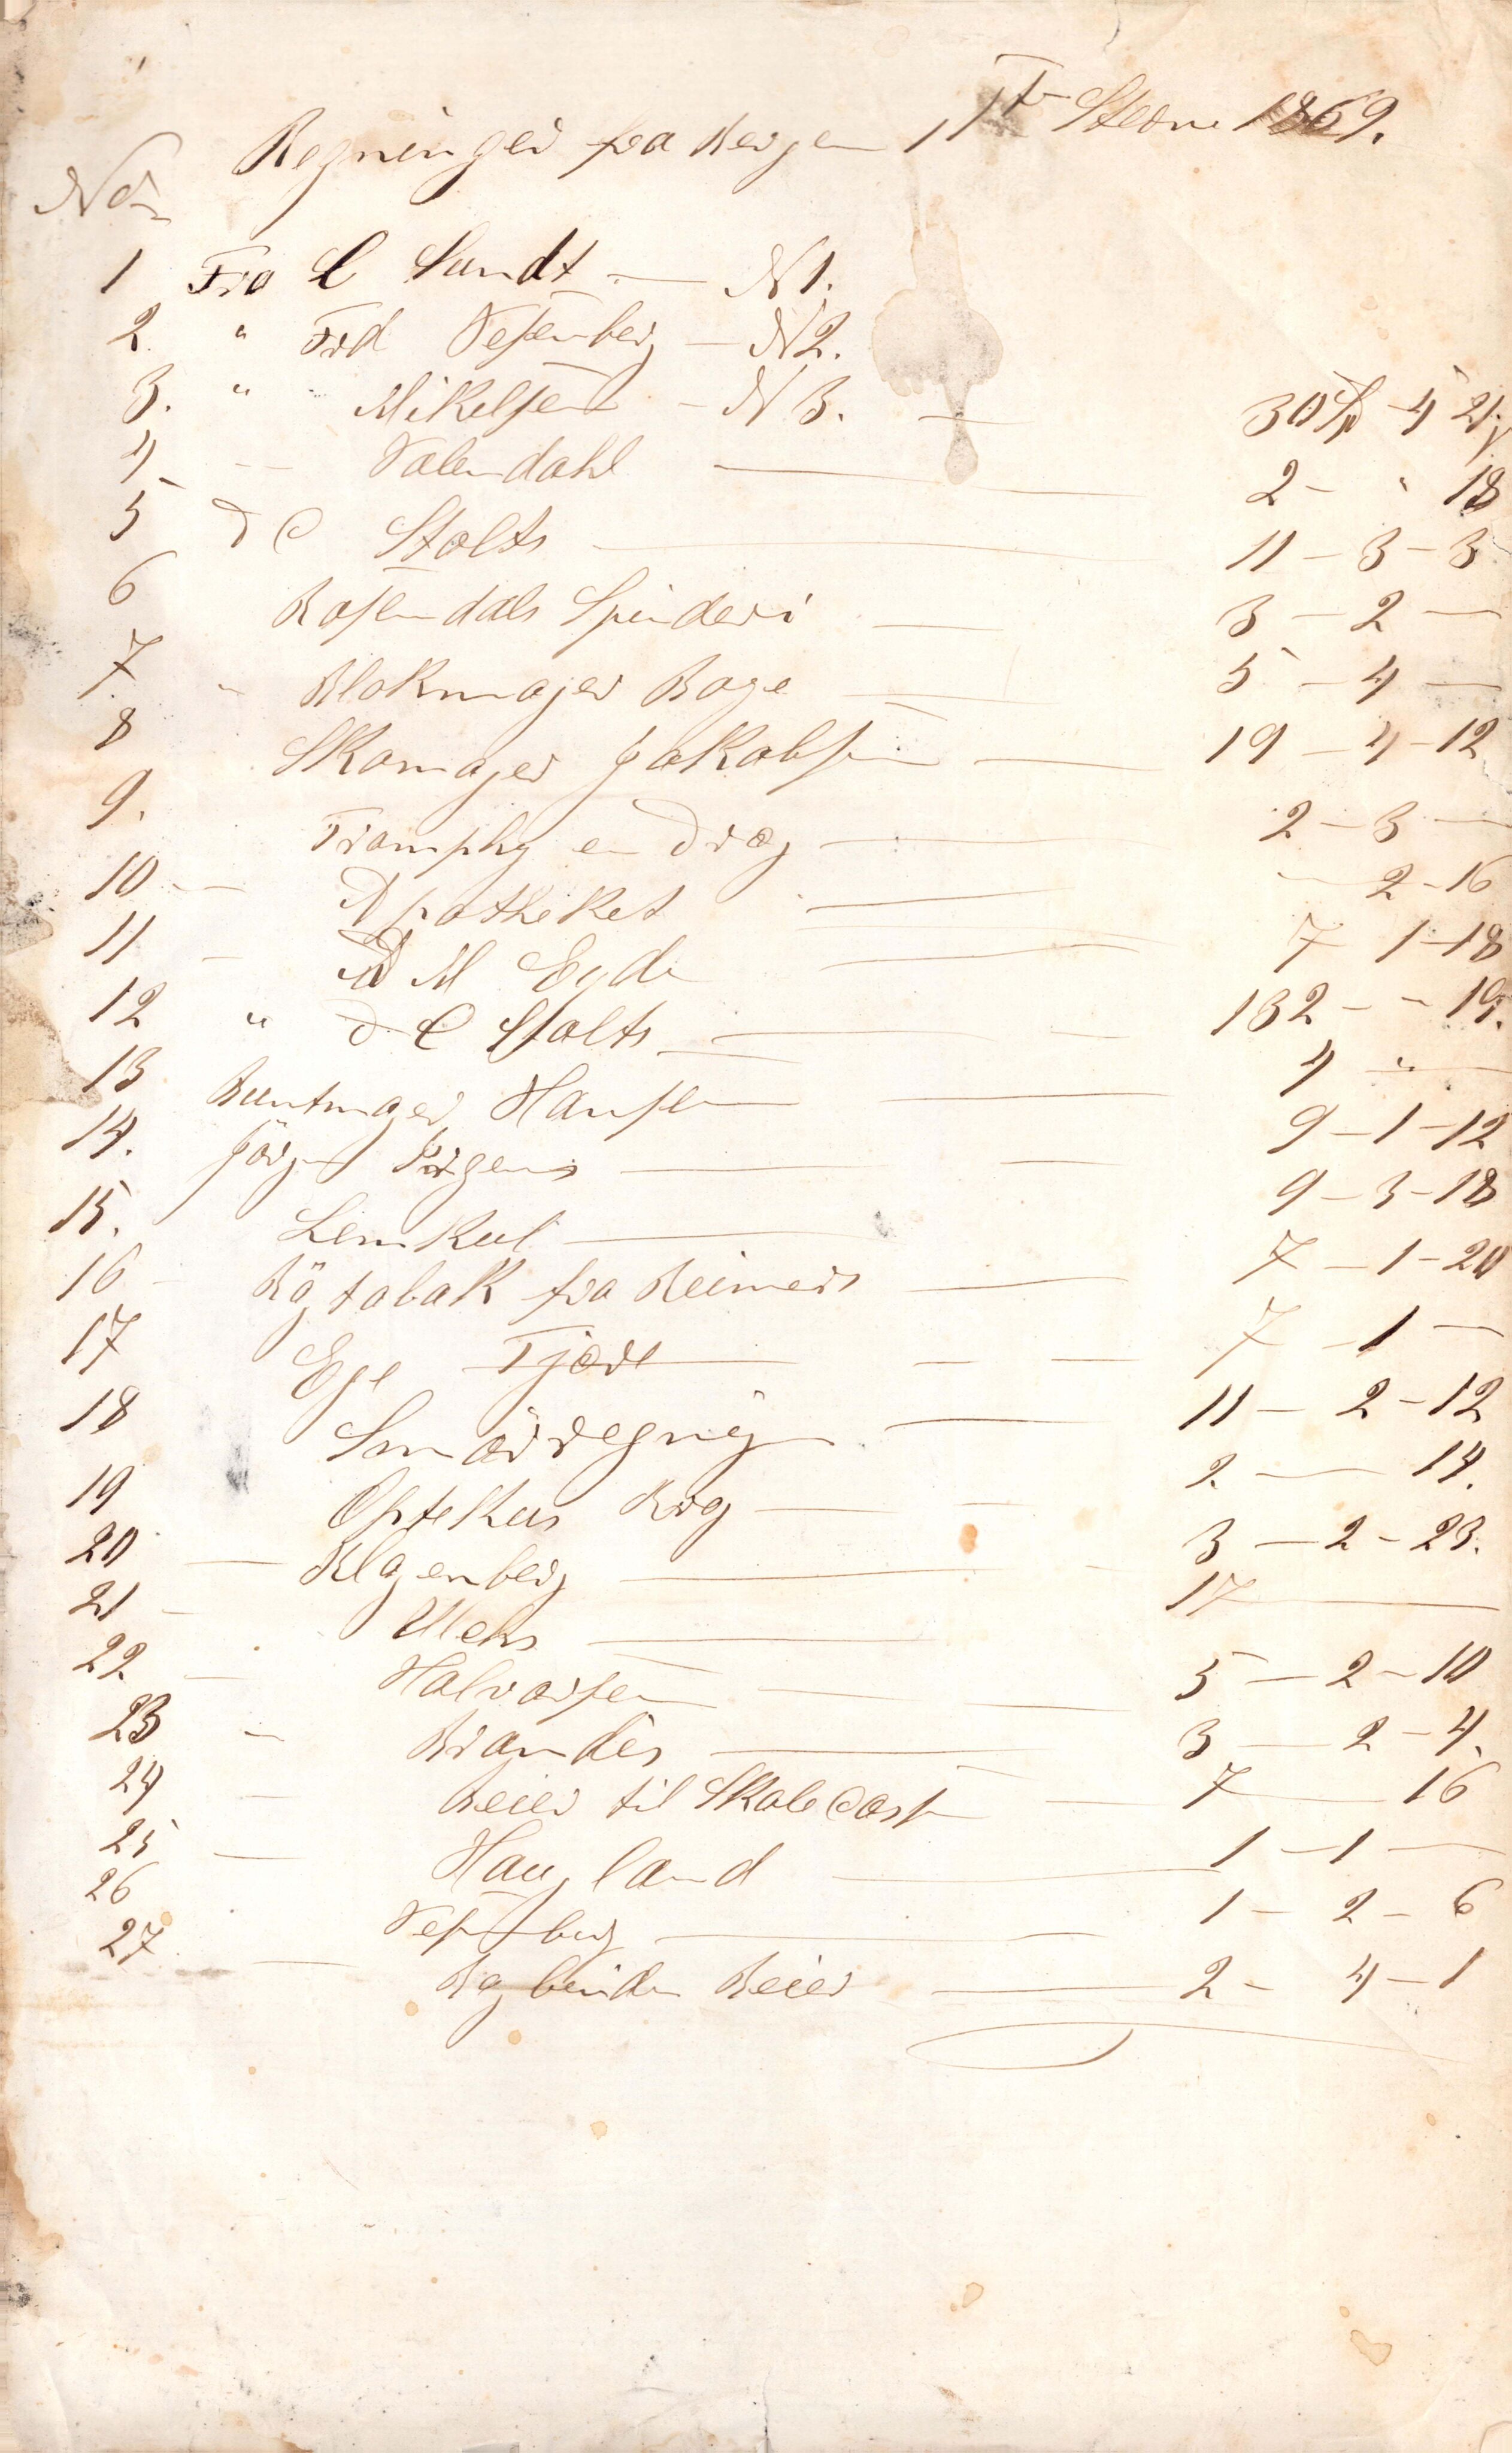 Regninger fra Bergen 1ste Stevne 1869.
No
1 Fra C Sundt — N 1.
2. " Frd Vesenberg — N 2.
3. " Mikelsen — N 3. — 30 Sp 4 21
4 — Valendahl — 2 - " 18
5 D C Stolts — 11 - 3 - 3
6 Rosendals Spinderi — 3 - 2 —
7. " Blokmager Boge — 5 - 4 —
8 Skomager Jakobsen — 19 - 4 - 12
9. en Dræg — 2 - 3 —
10 — Apotheket — 2 - 16
11 — M Eyde — 7 1 - 18
12 " D C Stolts — 132 - - 19.
13 Buntmager Hansen — 4 " —
14. Jörgen Irgens — 9 - 1 - 12
15. Lemkul — 9 - 3 - 18
16 Rögtobak fra Reimers — 7 - 1 - 20
17 Ege Tjære — 7 - 1 —
18 Smörregning — 11 - 2 - 12
19 Optekus Krog — 2 — 14.
20 — Klagenberg — 3 - 2 - 23.
21 - Mehs — 17 —
22 — Halvorsen — 5 - 2 - 10
23 — Brandes — 3 - 2 - 4.
24 — Beier til Skole — 7 — 16
25 — Haugland — 1 - 1 —
26 Vesenberg — 1 - 2 - 6
27 — Bogbinder Beier — 2 - 4 - 1